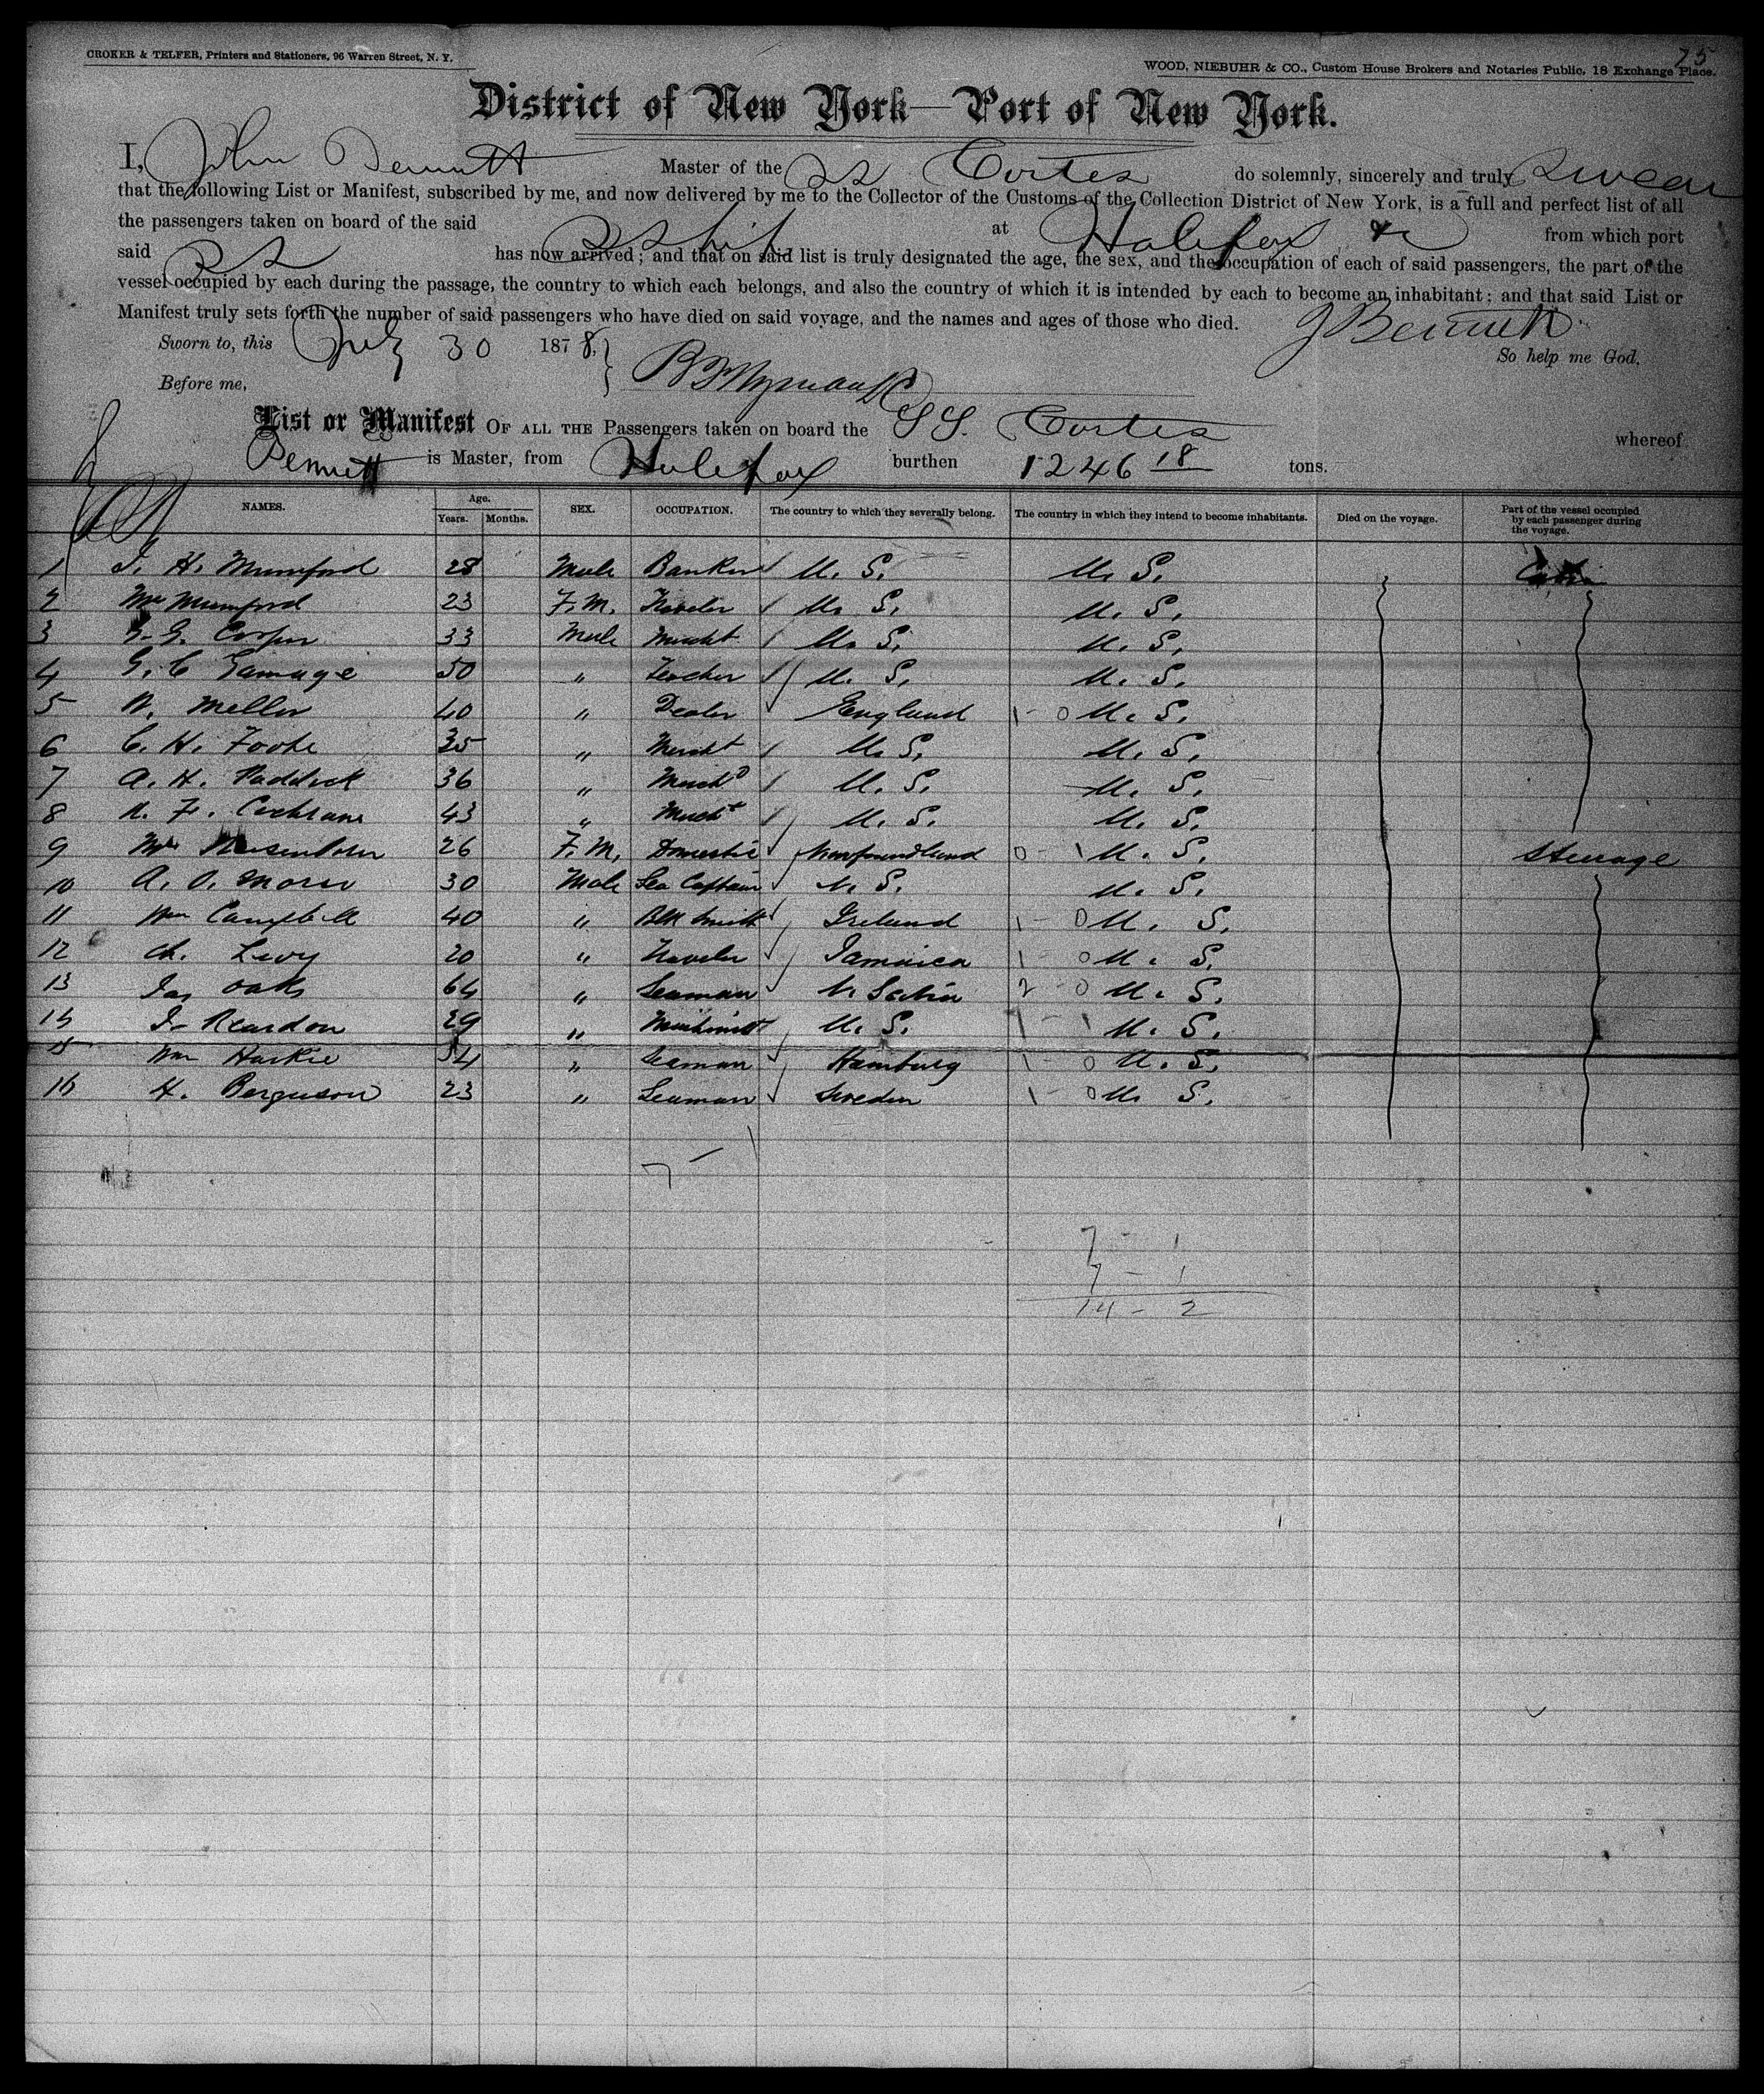 75
CROKER & TELFER, Printers and Stationers, 96 Warren Street, N. Y.
WOOD, NIEBUHR & CO., Custom House Brokers and Notaries Public, 18 Exchange Place.
District of New York—Port of New York.
I, John Bennett Master of the SS Cortes do solemnly, sincerely and truly Swear
that the following List or Manifest, subscribed by me, and now delivered by me to the Collector of the Customs of the Collection District of New York, is a full and perfect list of all
the passengers taken on board of the said SShip at Halifax &c from which port
said SS has now arrived; and that on said list is truly designated the age, the sex, and the occupation of each of said passengers, the part of the
vessel occupied by each during the passage, the country to which each belongs, and also the country of which it is intended by each to become an inhabitant; and that said List or
Manifest truly sets forth the number of said passengers who have died on said voyage, and the names and ages of those who died. J Bennett
Sworn to, this July 30 1878, So help me God.
Before me,
List or Manifest OF ALL THE Passengers taken on board the SS. Cortes whereof
Bennett is Master, from Halifax burthen 1246 18 tons.
NAMES. Age. Years. Months. SEX. OCCUPATION. The country to which they severally belong. The country in which they intend to become inhabitants. Died on the voyage. Part of the vessel occupied by each passenger during the voyage.
1 H. Mumford 28 Male Banker U. S. U. S. Cabin
2 Mrs Mumford 23 F.M. Traveler U. S. U. S.
3 Cooper 33 Male Mercht U. S. U. S.
4 G. C Gamage 50 " Teacher U. S. U. S.
5 Meller 40 " Dealer England 1 - 0 U. S.
6 C. H. Foote 35 " Mercht U. S. U. S.
7 A. H. Paddock 36 " Mercht U. S. U. S.
8 F. Cochrane 43 " Mercht U. S. U. S.
9 26 F.M. Domestic Newfoundland 0 - 1 U. S. Steerage
10 A. O. Morse 30 Male Sea Captain U. S. U. S.
11 Wm Campbell 40 " Blk Smith Ireland 1 - 0 U. S.
12 Ch. Levy 20 " Traveler Jamaica 1 0 U. S.
13 Jas Oaks 64 " Seaman N. Scotia 2 - 0 U. S.
14 Reardon 29 " Machinist U. S. 1 - 1 U. S.
15 Wm Harkie 34 " Seaman Hamburg 1 - 0 U. S.
16 H. Berguson 23 " Seaman Sweden 1 - 0 U. S.
7 - 1
7 - 1
14 - 2